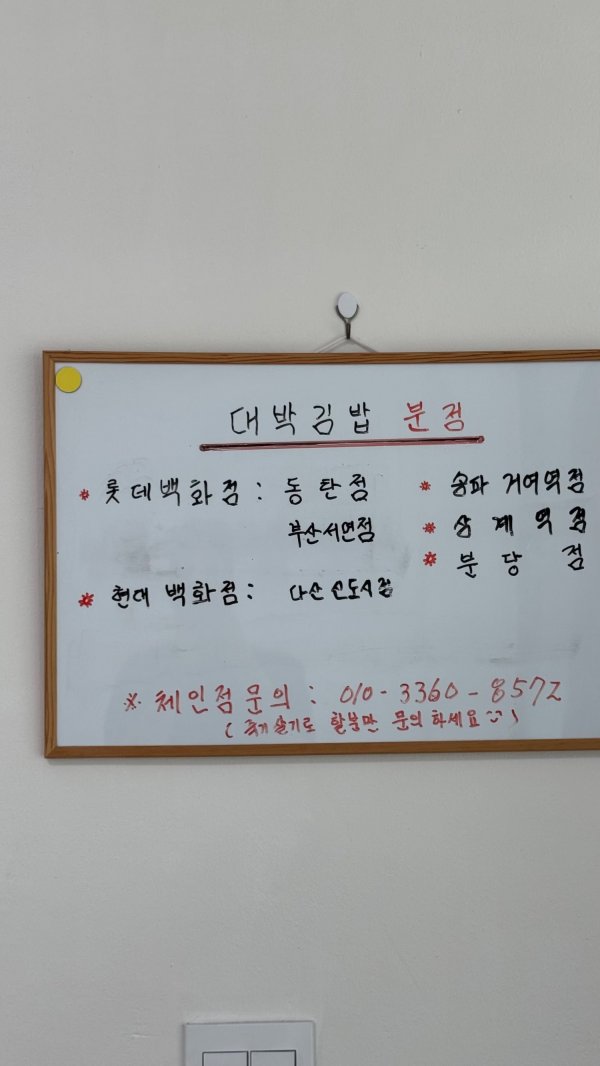 대박김밥 분점
* 롯데백화점 : 동탄점
부산서면점
* 현대 백화점 : 다산 신도시점
* 송파 거여역점
* 상계역점
* 분당점
※ 체인점문의 : 010-3360-8572
( 죽기살기로 할분만 문의 하세요 )